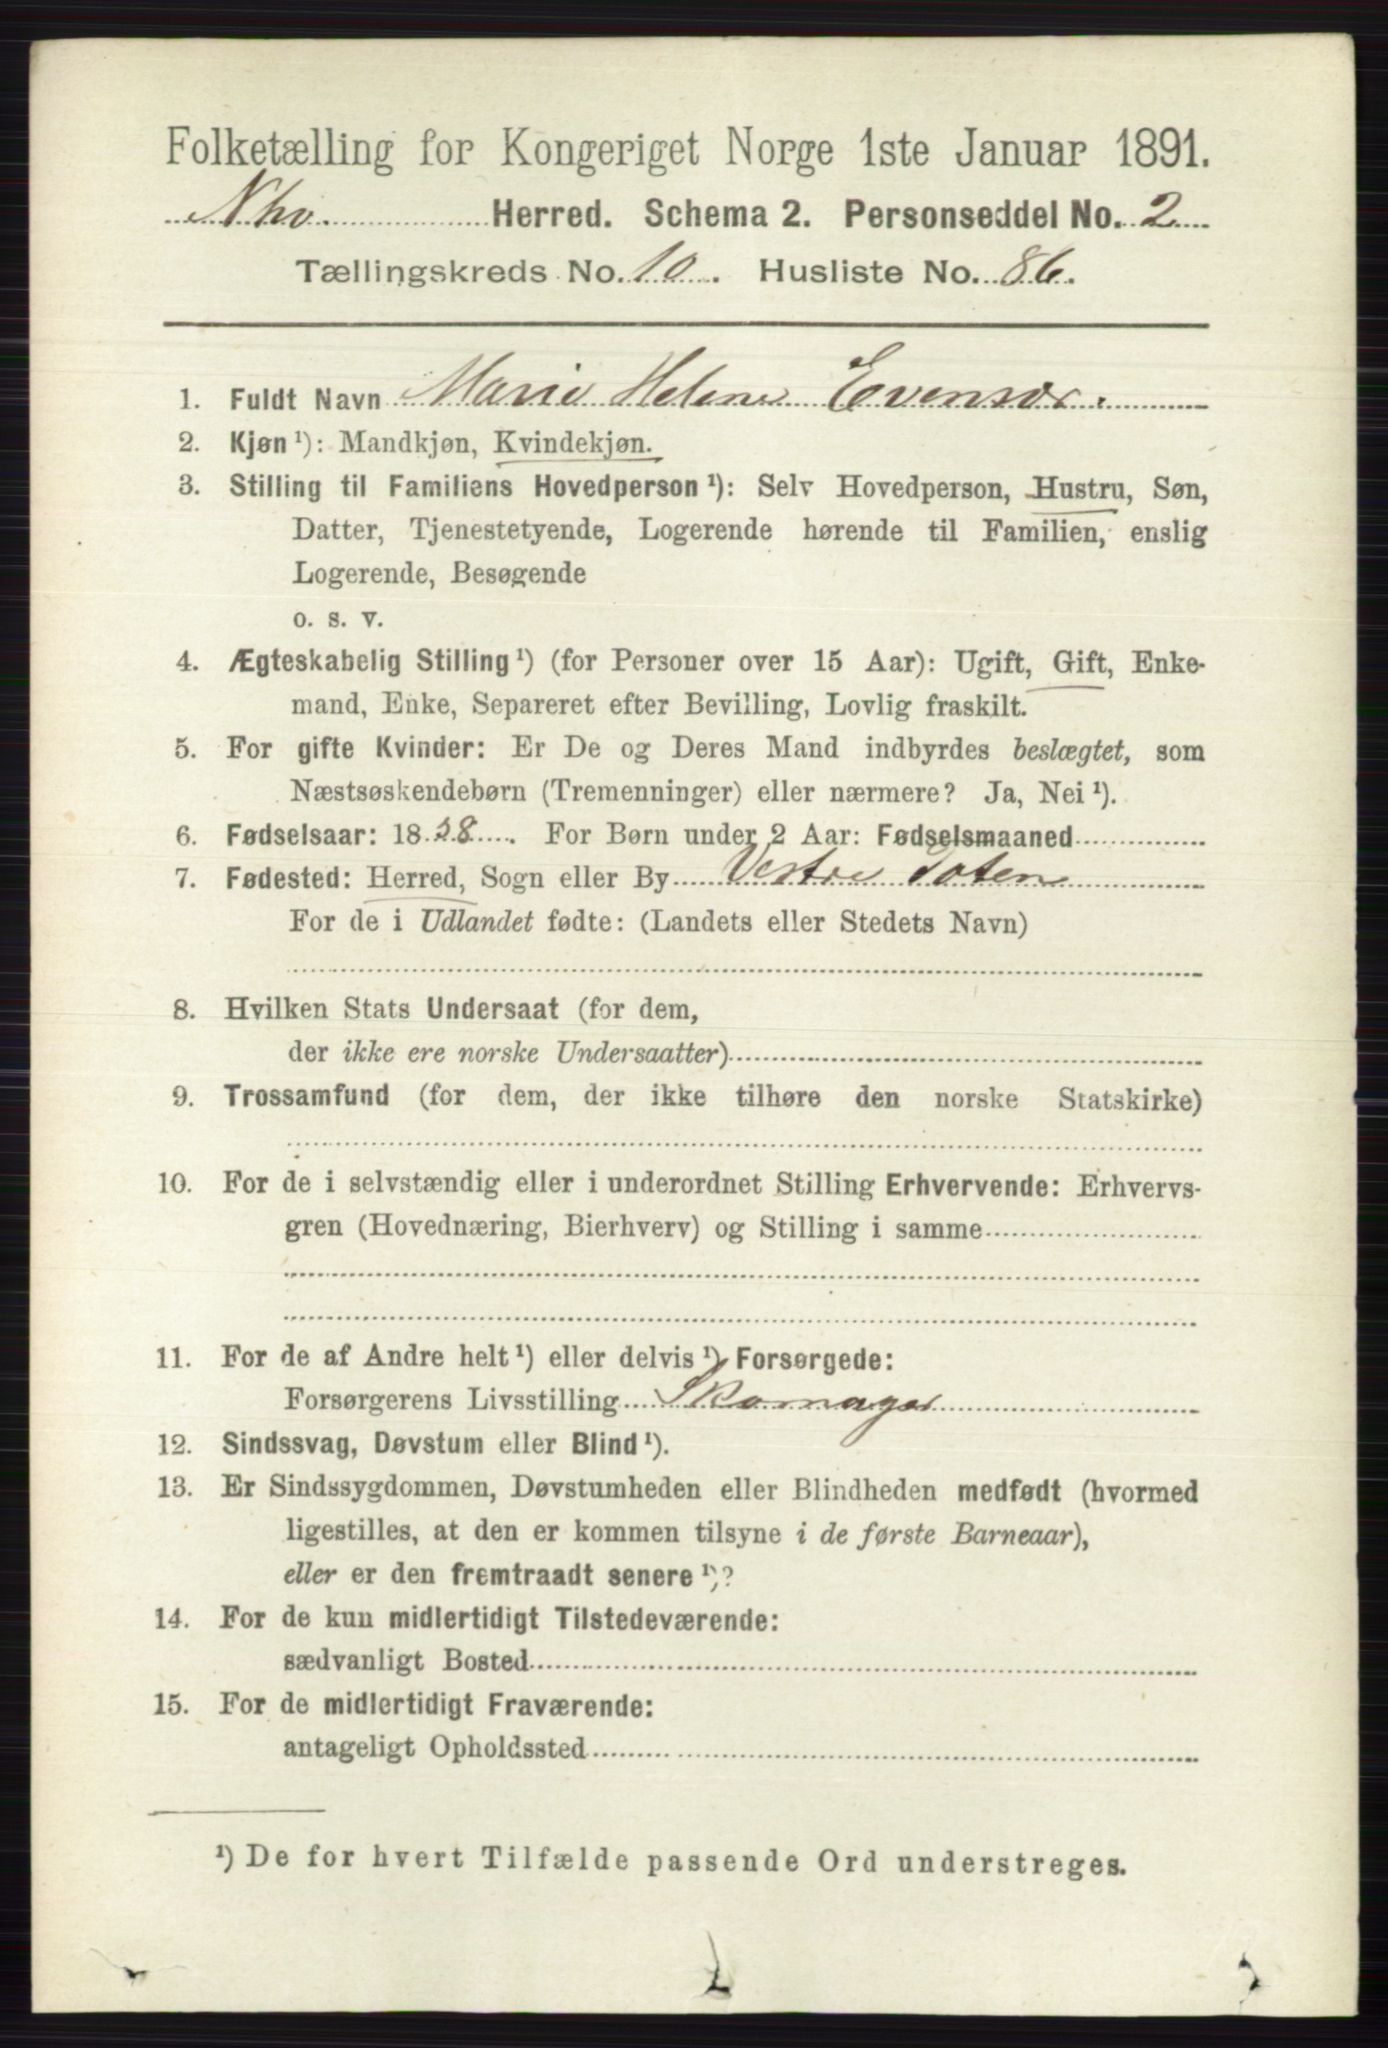 Folketælling for Kongeriget Norge 1ste Januar 1891.
Nho Herred. Schema 2. Personseddel No. 2
Tællingskreds No. 10. Husliste No. 86.
1. Fuldt Navn Marie Helene Evensdr.
2. Kjøn ¹): Mandkjøn, Kvindekjøn.
3. Stilling til Familiens Hovedperson ¹): Selv Hovedperson, Hustru, Søn,
Datter, Tjenestetyende, Logerende hørende til Familien, enslig
Logerende, Besøgende
o. s. v.
4. Ægteskabelig Stilling ¹) (for Personer over 15 Aar): Ugift, Gift, Enke-
mand, Enke, Separeret efter Bevilling, Lovlig fraskilt.
5. For gifte Kvinder: Er De og Deres Mand indbyrdes beslægtet, som
Næstsøskendebørn (Tremenninger) eller nærmere? Ja, Nei ¹).
6. Fødselsaar: 18 . For Børn under 2 Aar: Fødselsmaaned
7. Fødested: Herred, Sogn eller By Vestre Toten
For de i Udlandet fødte: (Landets eller Stedets Navn)
8. Hvilken Stats Undersaat (for dem,
der ikke ere norske Undersaatter)
9. Trossamfund (for dem, der ikke tilhøre den norske Statskirke)
10. For de i selvstændig eller i underordnet Stilling Erhvervende: Erhvervs-
gren (Hovednæring, Bierhverv) og Stilling i samme
11. For de af Andre helt ¹) eller delvis ¹) Forsørgede:
Forsørgerens Livsstilling Skomager
12. Sindssvag, Døvstum eller Blind ¹).
13. Er Sindssygdommen, Døvstumheden eller Blindheden medfødt (hvormed
ligestilles, at den er kommen tilsyne i de første Barneaar),
eller er den fremtraadt senere ¹)?
14. For de kun midlertidigt Tilstedeværende:
sædvanligt Bosted
15. For de midlertidigt Fraværende:
antageligt Opholdssted
¹) De for hvert Tilfælde passende Ord understreges.